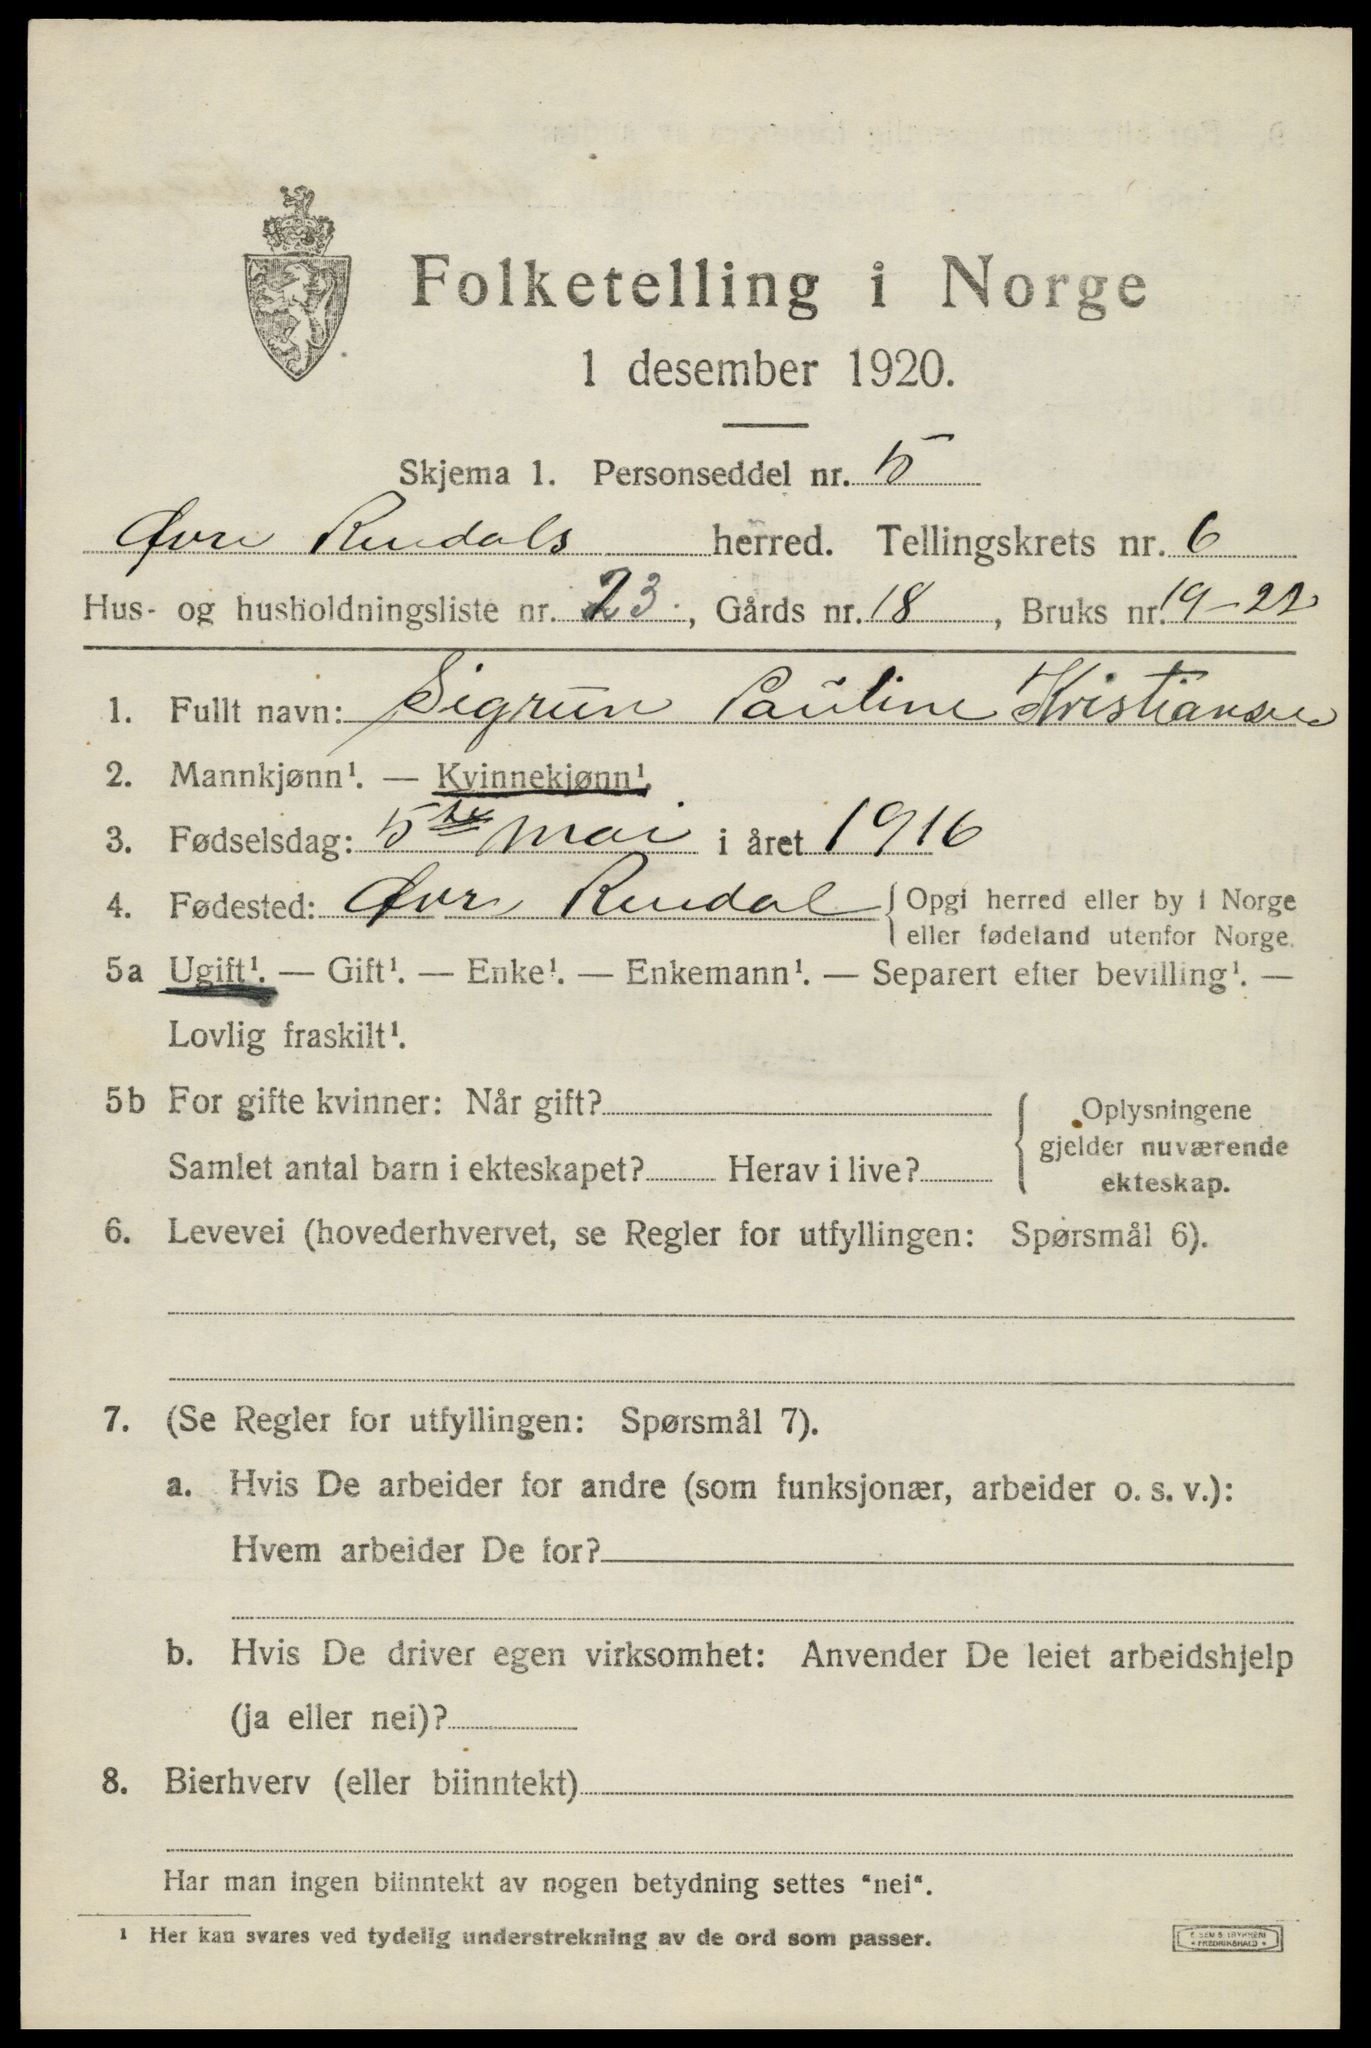 Folketelling i Norge
1 desember 1920.
Skjema 1. Personseddel nr. 5
Øvre Rendals herred. Tellingskrets nr. 6
Hus- og husholdningsliste nr. 23., Gårds nr. 18, Bruks nr. 19-22
1. Fullt navn: Sigrun Pauline Kristiansen
2. Mannkjønn¹. — Kvinnekjønn¹.
3. Fødselsdag: 5te mai i året 1916
4. Fødested: Øvre Rendal { Opgi herred eller by i Norge
eller fødeland utenfor Norge.
5a Ugift¹. — Gift¹. — Enke¹. — Enkemann¹. — Separert efter bevilling¹. —
Lovlig fraskilt¹.
5b For gifte kvinner: Når gift?
Samlet antal barn i ekteskapet? Herav i live?
{ Oplysningene
gjelder nuværende
ekteskap.
6. Levevei (hovederhvervet, se Regler for utfyllingen: Spørsmål 6).
7. (Se Regler for utfyllingen: Spørsmål 7).
a. Hvis De arbeider for andre (som funksjonær, arbeider o. s. v.):
Hvem arbeider De for?
b. Hvis De driver egen virksomhet: Anvender De leiet arbeidshjelp
(ja eller nei)?
8. Bierhverv (eller biinntekt)
Har man ingen biinntekt av nogen betydning settes "nei".
¹ Her kan svares ved tydelig understrekning av de ord som passer.
FREDRIKSHALD